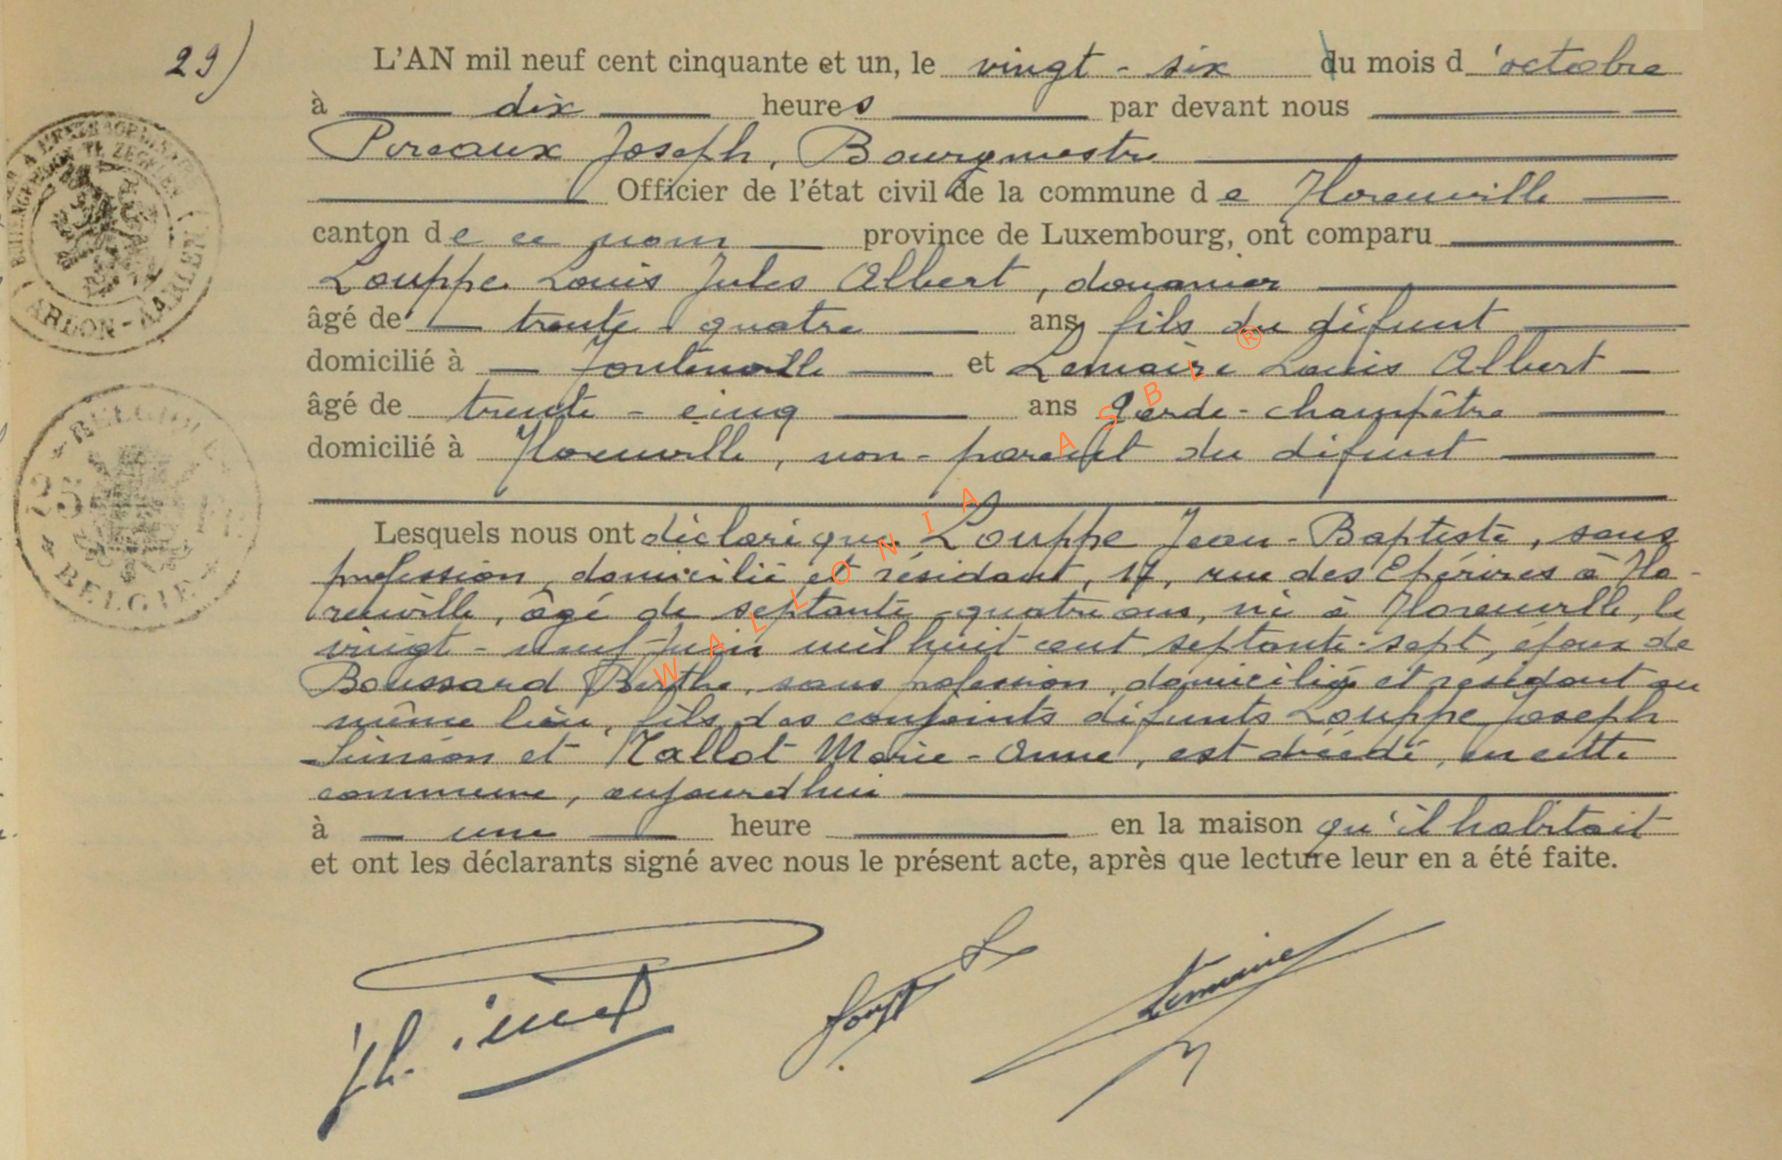 29)
L'AN mil neuf cent cinquante et un, le vingt - six du mois d 'octobre
à dix heures par devant nous
Pireaux Joseph, Bourgmestre
Officier de l'état civil de la commune de Florenville
canton de ce nom province de Luxembourg, ont comparu
Louppe Louis Jules Albert, douanier
âgé de trente - quatre ans, fils du défunt
domicilié à Fontenoille et Lemaire Louis Albert
âgé de trente - cinq ans garde - champêtre
domicilié à Florenville, non - parent du défunt
Lesquels nous ont déclaré que Louppe Jean - Baptiste, sans
profession, domicilié et résidant, 17, rue des Epérires à Flo -
renville, âgé de septante - quatre ans, né à Florenville, le
vingt - neuf Juin mil huit cent septante - sept, époux de
Boussard Berthe, sans profession, domiciliée et résidant au
même lieu, fils des conjoints défunts Louppe Joseph
Siméon et Mallot Marie - Anne, est décédé, en cette
commune, aujourd'hui
à une heure en la maison qu'il habitait
et ont les déclarants signé avec nous le présent acte, après que lecture leur en a été faite.
Lemaire
ARLON - AARLEN
BELGIQUE
BELGIE
WALLONIA ASBL ®